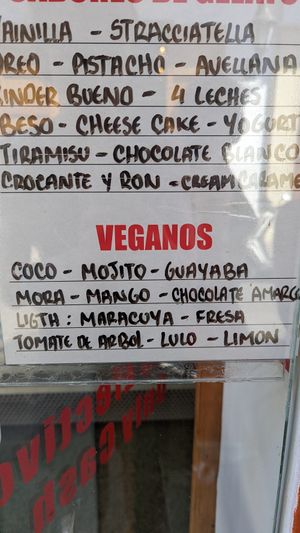 SABORES DE GELATO
VAINILLA - STRACCIATELLA
OREO - PISTACHO - AVELLANA
KINDER BUENO - 4 LECHES
BESO - CHEESE CAKE - YOGURT
TIRAMISU - CHOCOLATE BLANCO
CROCANTE Y RON - CREAM CARAME
VEGANOS
COCO - MOJITO - GUAYABA
MORA - MANGO - CHOCOLATE AMARGO
LIGTH : MARACUYA - FRESA
TOMATE DE ARBOL - LULO - LIMON
Effectivo
Only Cash